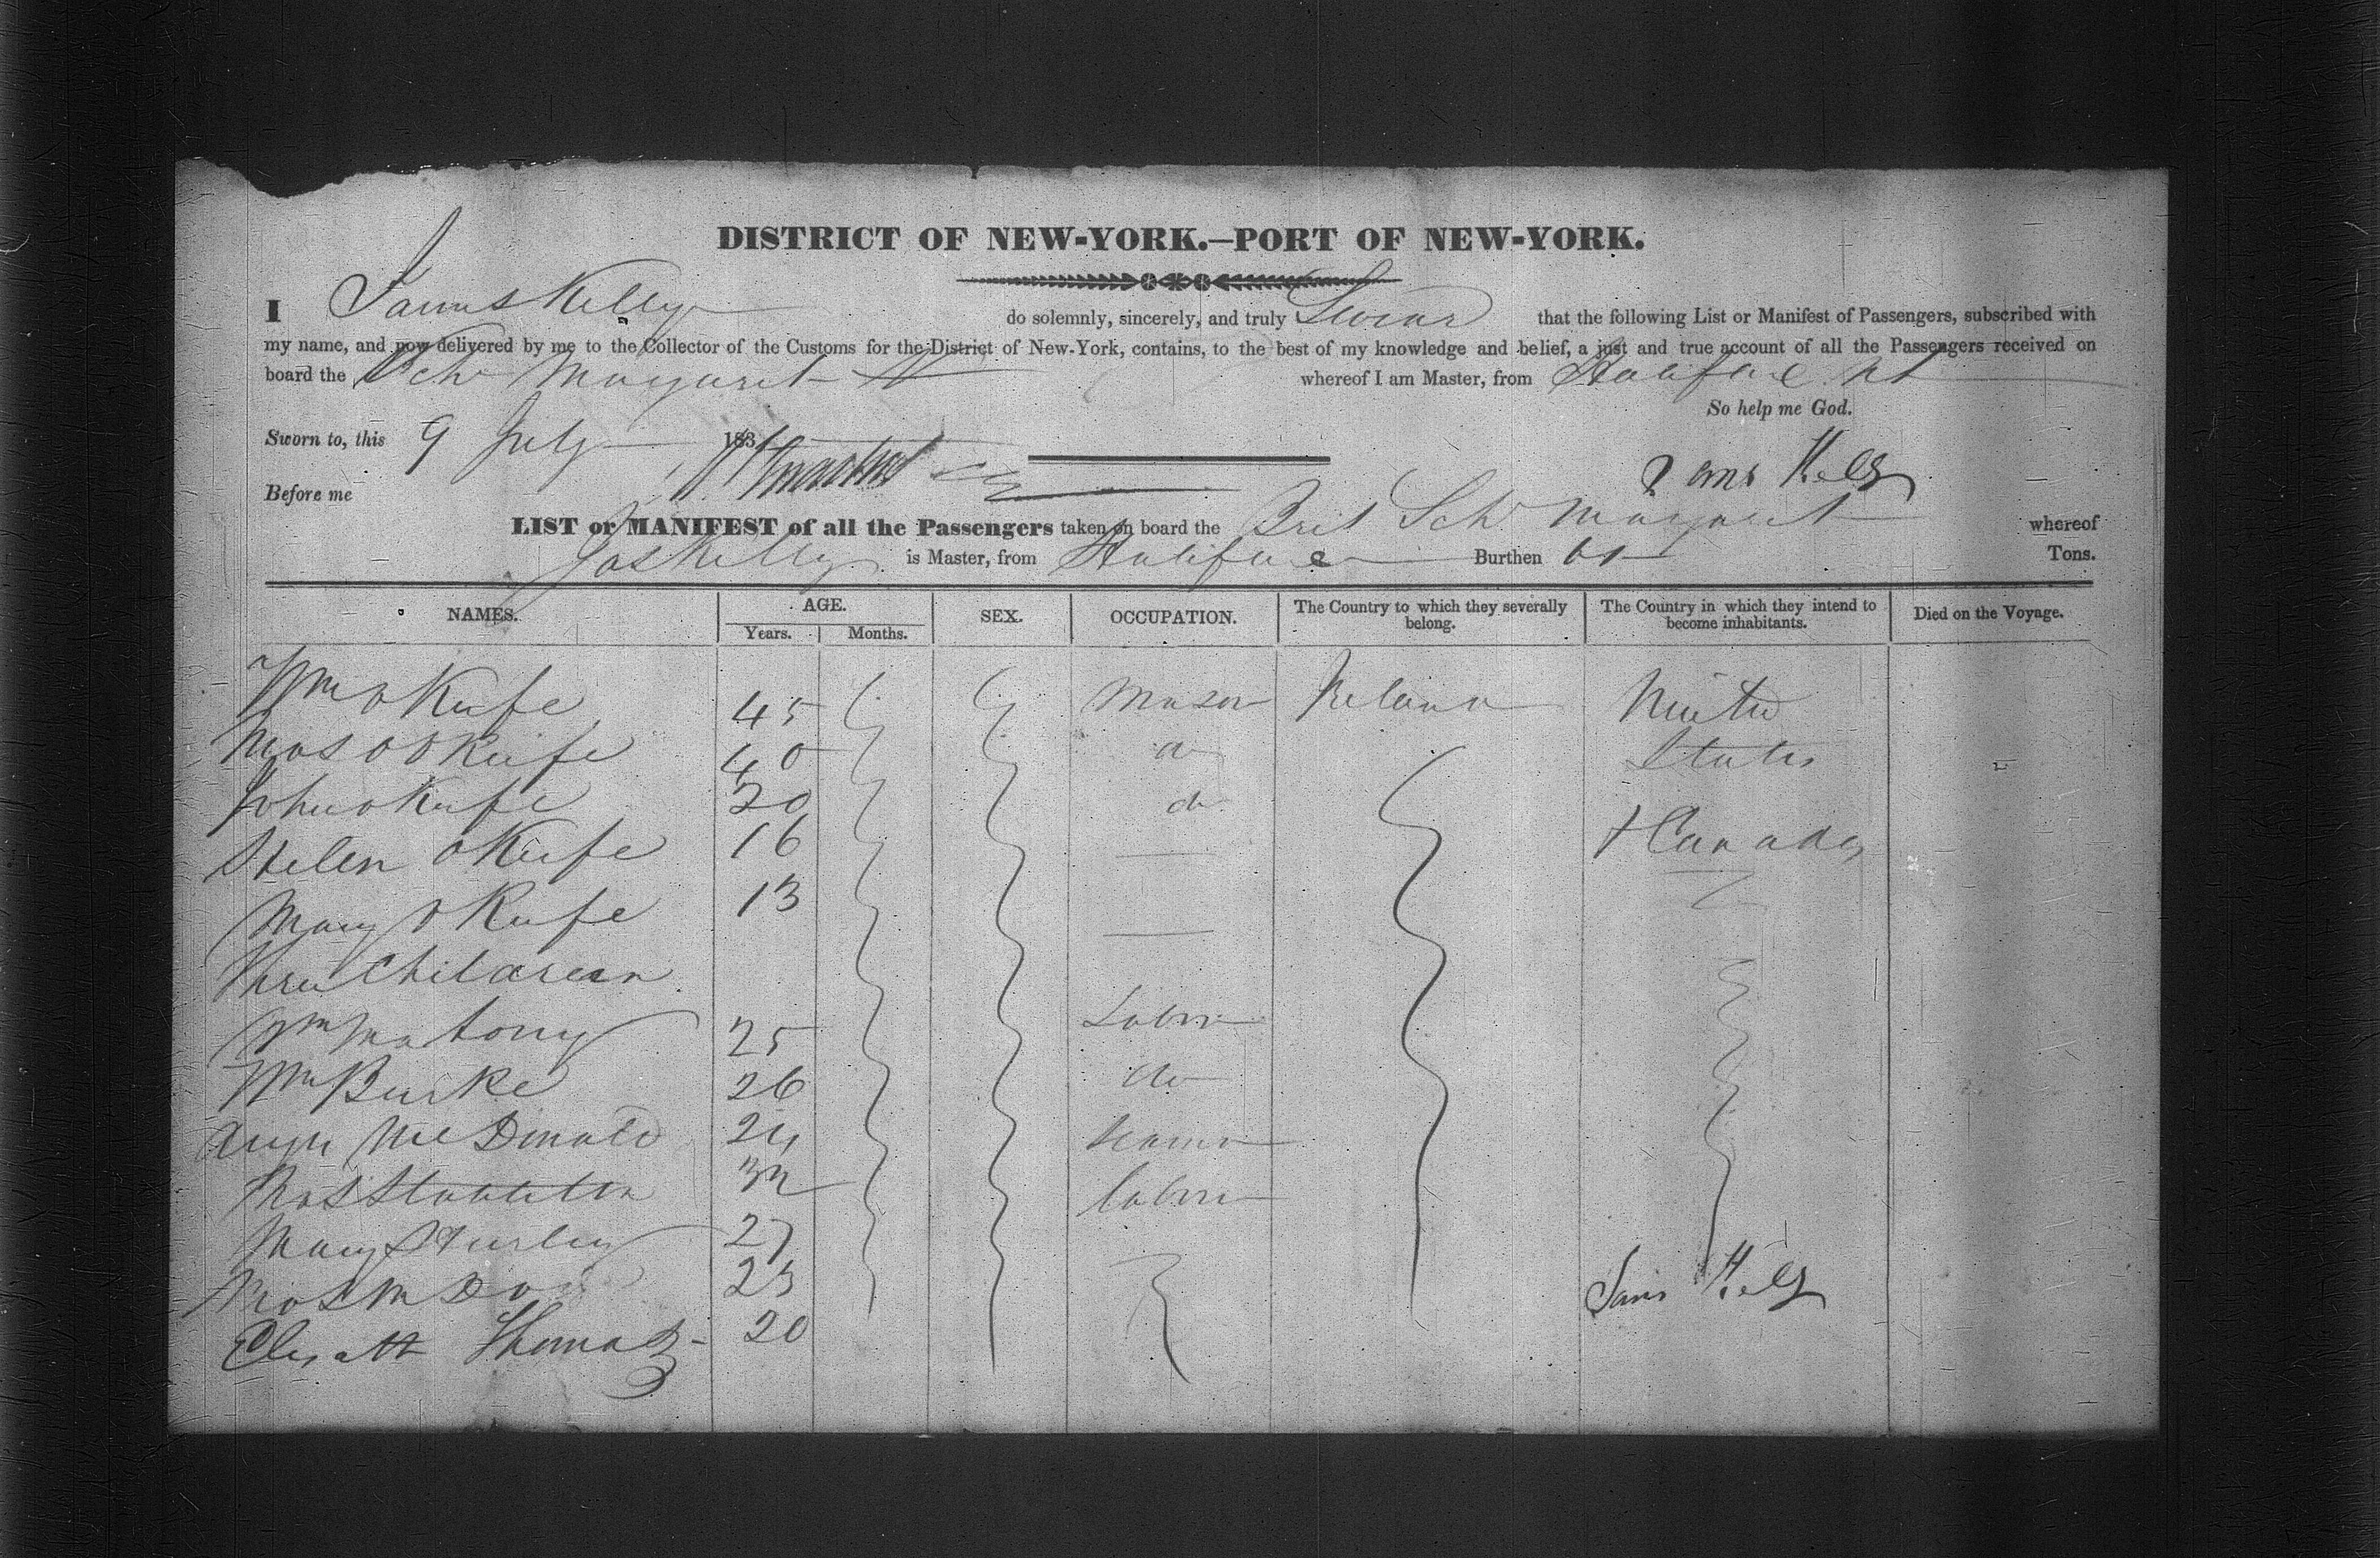 DISTRICT OF NEW-YORK.—PORT OF NEW-YORK.
I James Kelly do solemnly, sincerely, and truly Swear that the following List or Manifest of Passengers, subscribed with
my name, and now delivered by me to the Collector of the Customs for the District of New-York, contains, to the best of my knowledge and belief, a just and true account of all the Passengers received on
board the Schr Margaret whereof I am Master, from Halifax
So help me God.
Sworn to, this 9 July 183
James Kelly
Before me
LIST or MANIFEST of all the Passengers taken on board the Brit Schr Margaret whereof
Jas Kelly is Master, from Halifax Burthen Tons.
NAMES. AGE. SEX. OCCUPATION. The Country to which they severally belong. The Country in which they intend to become inhabitants. Died on the Voyage.
Years. Months.
Wm O Keefe 45 Mason Ireland United
Mrs O Keife 40 do States
John O Keefe 20 do
Helen O Keife 16 + Canada
Mary O Keefe 13
Three Children
Wm Mahony 25 Labor
Wm Burke 26 do
McDonald 24
Mrs 32 Labor
Mary 27
Mrs 23
Thomas 20
James Kelly